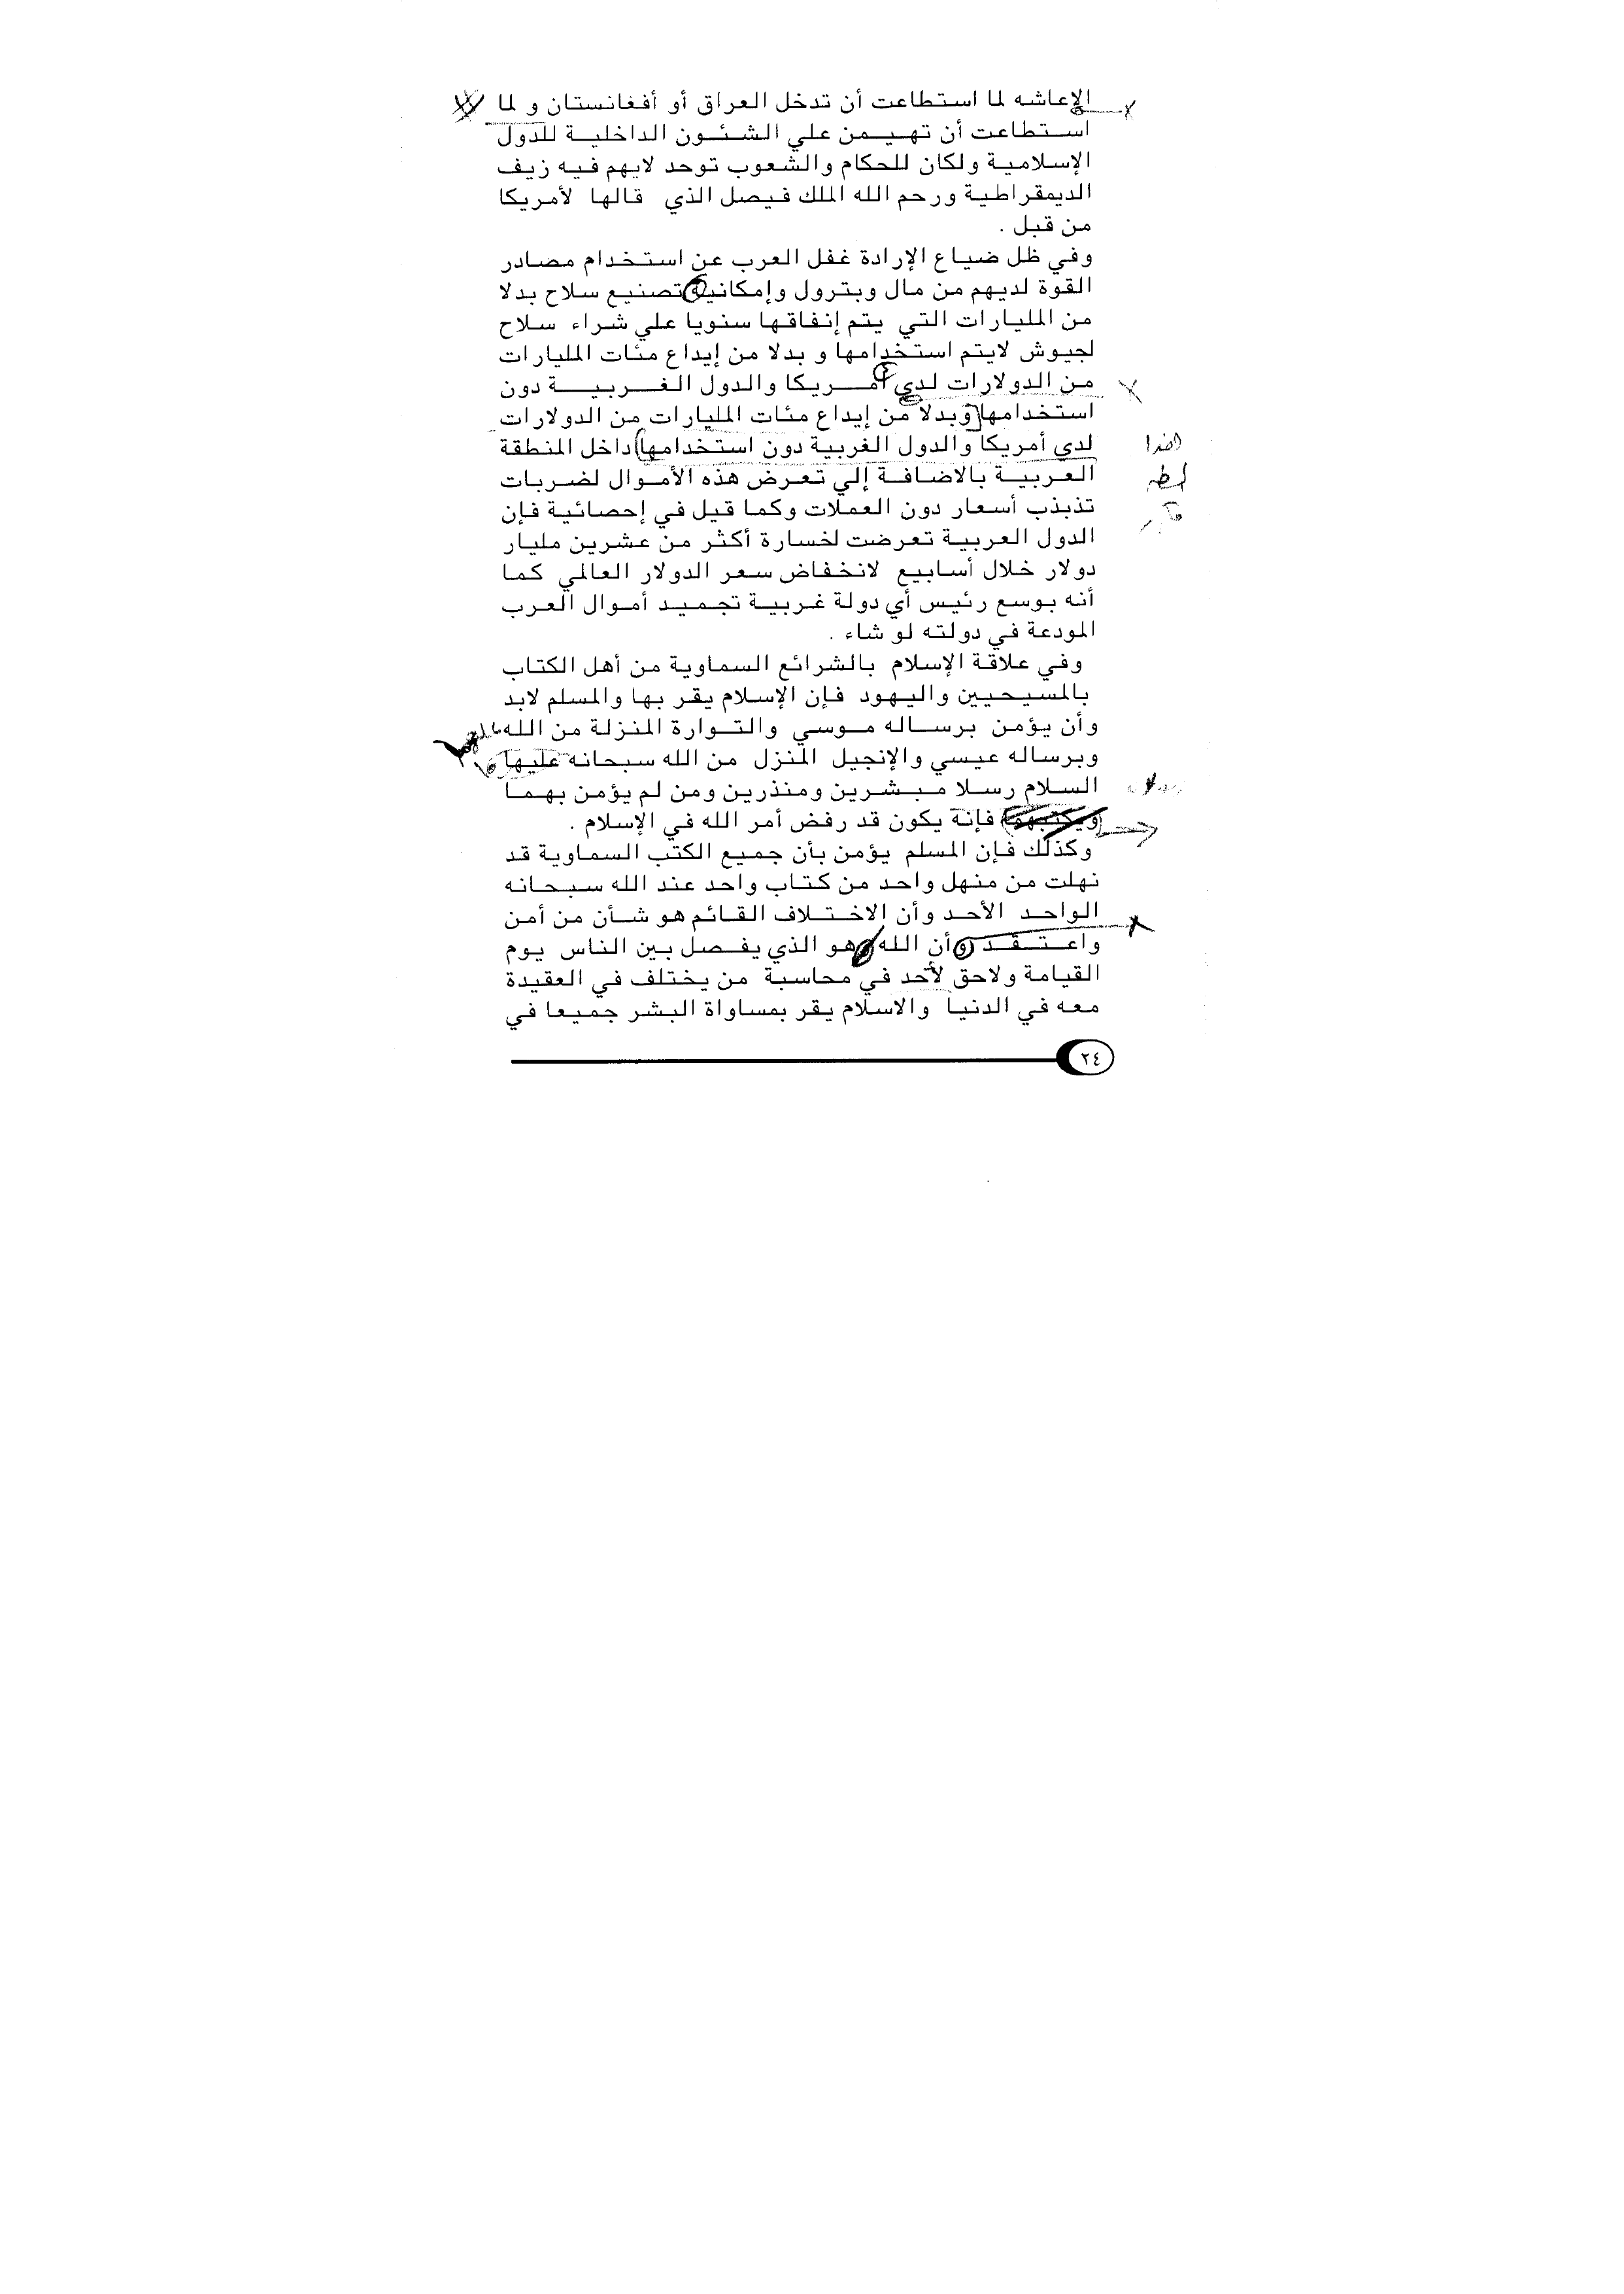 الإعاشه لما استطاعت أن تدخل العراق أو أفغانستان و لما
استطاعت أن تهيمن علي الشئون الداخلية للدول
الإسلامية ولكان للحكام والشعوب توحد لايهم فيه زيف
الديمقراطية ورحم الله الملك فيصل الذي قالها لأمريكا
من قبل .
وفي ظل ضياع الإرادة غفل العرب عن استخدام مصادر
القوة لديهم من مال وبترول وإمكانية تصنيع سلاح بدلا
من المليارات التي يتم إنفاقها سنويا علي شراء سلاح
لجيوش لايتم استخدامها و بدلا من إيداع مئات المليارات
من الدولارات لدي أمريكا والدول الغربية دون
استخدامها (وبدلا من إيداع مئات المليارات من الدولارات
لدي أمريكا والدول الغربية دون استخدامها) داخل المنطقة
العربية بالاضافة إلي تعرض هذه الأموال لضربات
تذبذب أسعار دون العملات وكما قيل في إحصائية فإن
الدول العربية تعرضت لخسارة أكثر من عشرين مليار
دولار خلال أسابيع لانخفاض سعر الدولار العالمي كما
أنه بوسع رئيس أي دولة غربية تجميد أموال العرب
المودعة في دولته لو شاء .
وفي علاقة الإسلام بالشرائع السماوية من أهل الكتاب
بالمسيحيين واليهود فإن الإسلام يقر بها والمسلم لابد
وأن يؤمن برساله موسي والتوارة المنزلة من الله
وبرساله عيسي والإنجيل المنزل من الله سبحانه عليها
السلام رسلا مبشرين ومنذرين ومن لم يؤمن بهما
(ويكتبهما) فإنه يكون قد رفض أمر الله في الإسلام .
وكذلك فإن المسلم يؤمن بأن جميع الكتب السماوية قد
نهلت من منهل واحد من كتاب واحد عند الله سبحانه
الواحد الأحد وأن الاختلاف القائم هو شأن من أمن
واعتقد و أن الله وهو الذي يفصل بين الناس يوم
القيامة ولاحق لأحد في محاسبة من يختلف في العقيدة
معه في الدنيا والاسلام يقر بمساواة البشر جميعا في
٢٤